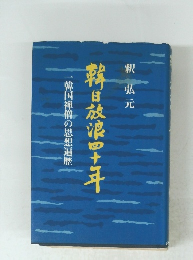 釈弘元
韓日放浪四十年
一韓国禅僧の思想遍歴